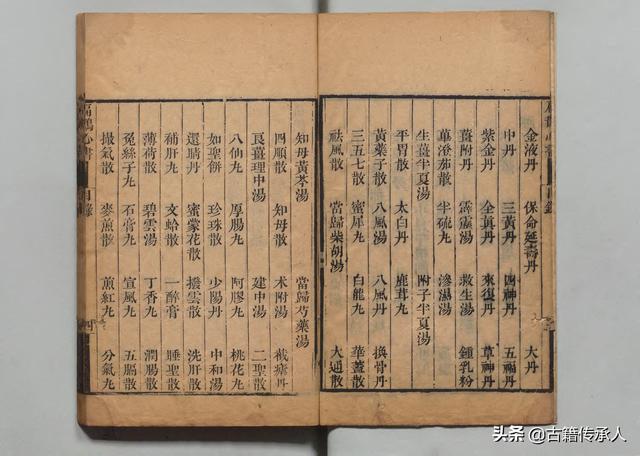 金液丹 保命延壽丹 大丹
中丹 三黃丹 四神丹 五福丹
紫金丹 全眞丹 來復丹 草神丹
薑附丹 霹靂湯 救生湯 鍾乳粉
蓽澄茄散 半硫丸 滲濕湯
生薑半夏湯 附子半夏湯
平胃散 太白丹 鹿茸丸
黃藥子散 八風湯 八風丹 換骨丹
三五七散 蜜犀丸 白龍丸 華蓋散
祛風散 當歸柴胡湯 大通散
知母黃芩湯 當歸芍藥湯
四順散 知母散 朮附湯 截瘧丹
良薑理中湯 建中湯 二聖散
八仙丸 厚腸丸 阿膠丸 桃花丸
如聖餅 珍珠散 少陽丹 中和湯
還睛丹 蜜蒙花散 撥雲散 洗肝散
補肝丸 文蛤散 一醉膏 睡聖散
薄荷散 碧雲湯 丁香丸 潤腸散
菟絲子丸 石膏丸 宣風丸 五膈散
撮氣散 麥煎散 煎紅丸 分氣丸
扁鵲心書 目錄 四
头条 @古籍传承人